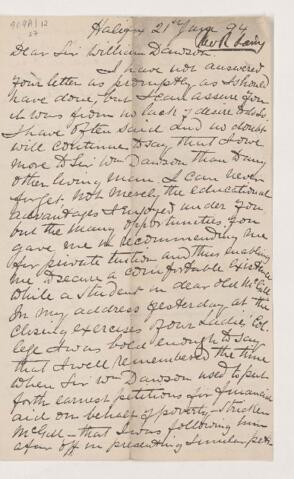 909A/12
27
Halifax 21st June 94
Rev R Laing
Dear Sir William Dawson.
I have not answered
your letter as promptly as I should
have done, but I can assure you
it was from no lack of desire to do so.
I have often said and no doubt
will continue to say that I owe
more to Sir Wm Dawson than to any
other living man. I can never
forget, not merely the educational
advantages I enjoyed under you
but the many opportunities you
gave me in recommending me
for private tuition and thus enabling
me to secure a comfortable existence
while a student in dear old McGill
In my address yesterday at the
closing exercises of our Ladies' Col-
lege I was bold enough to say
that I well remembered the time
when Sir Wm Dawson used to put
forth earnest petitions for financial
aid on behalf of poverty-stricken
McGill - that I was following him
afar off in presenting similar peti-